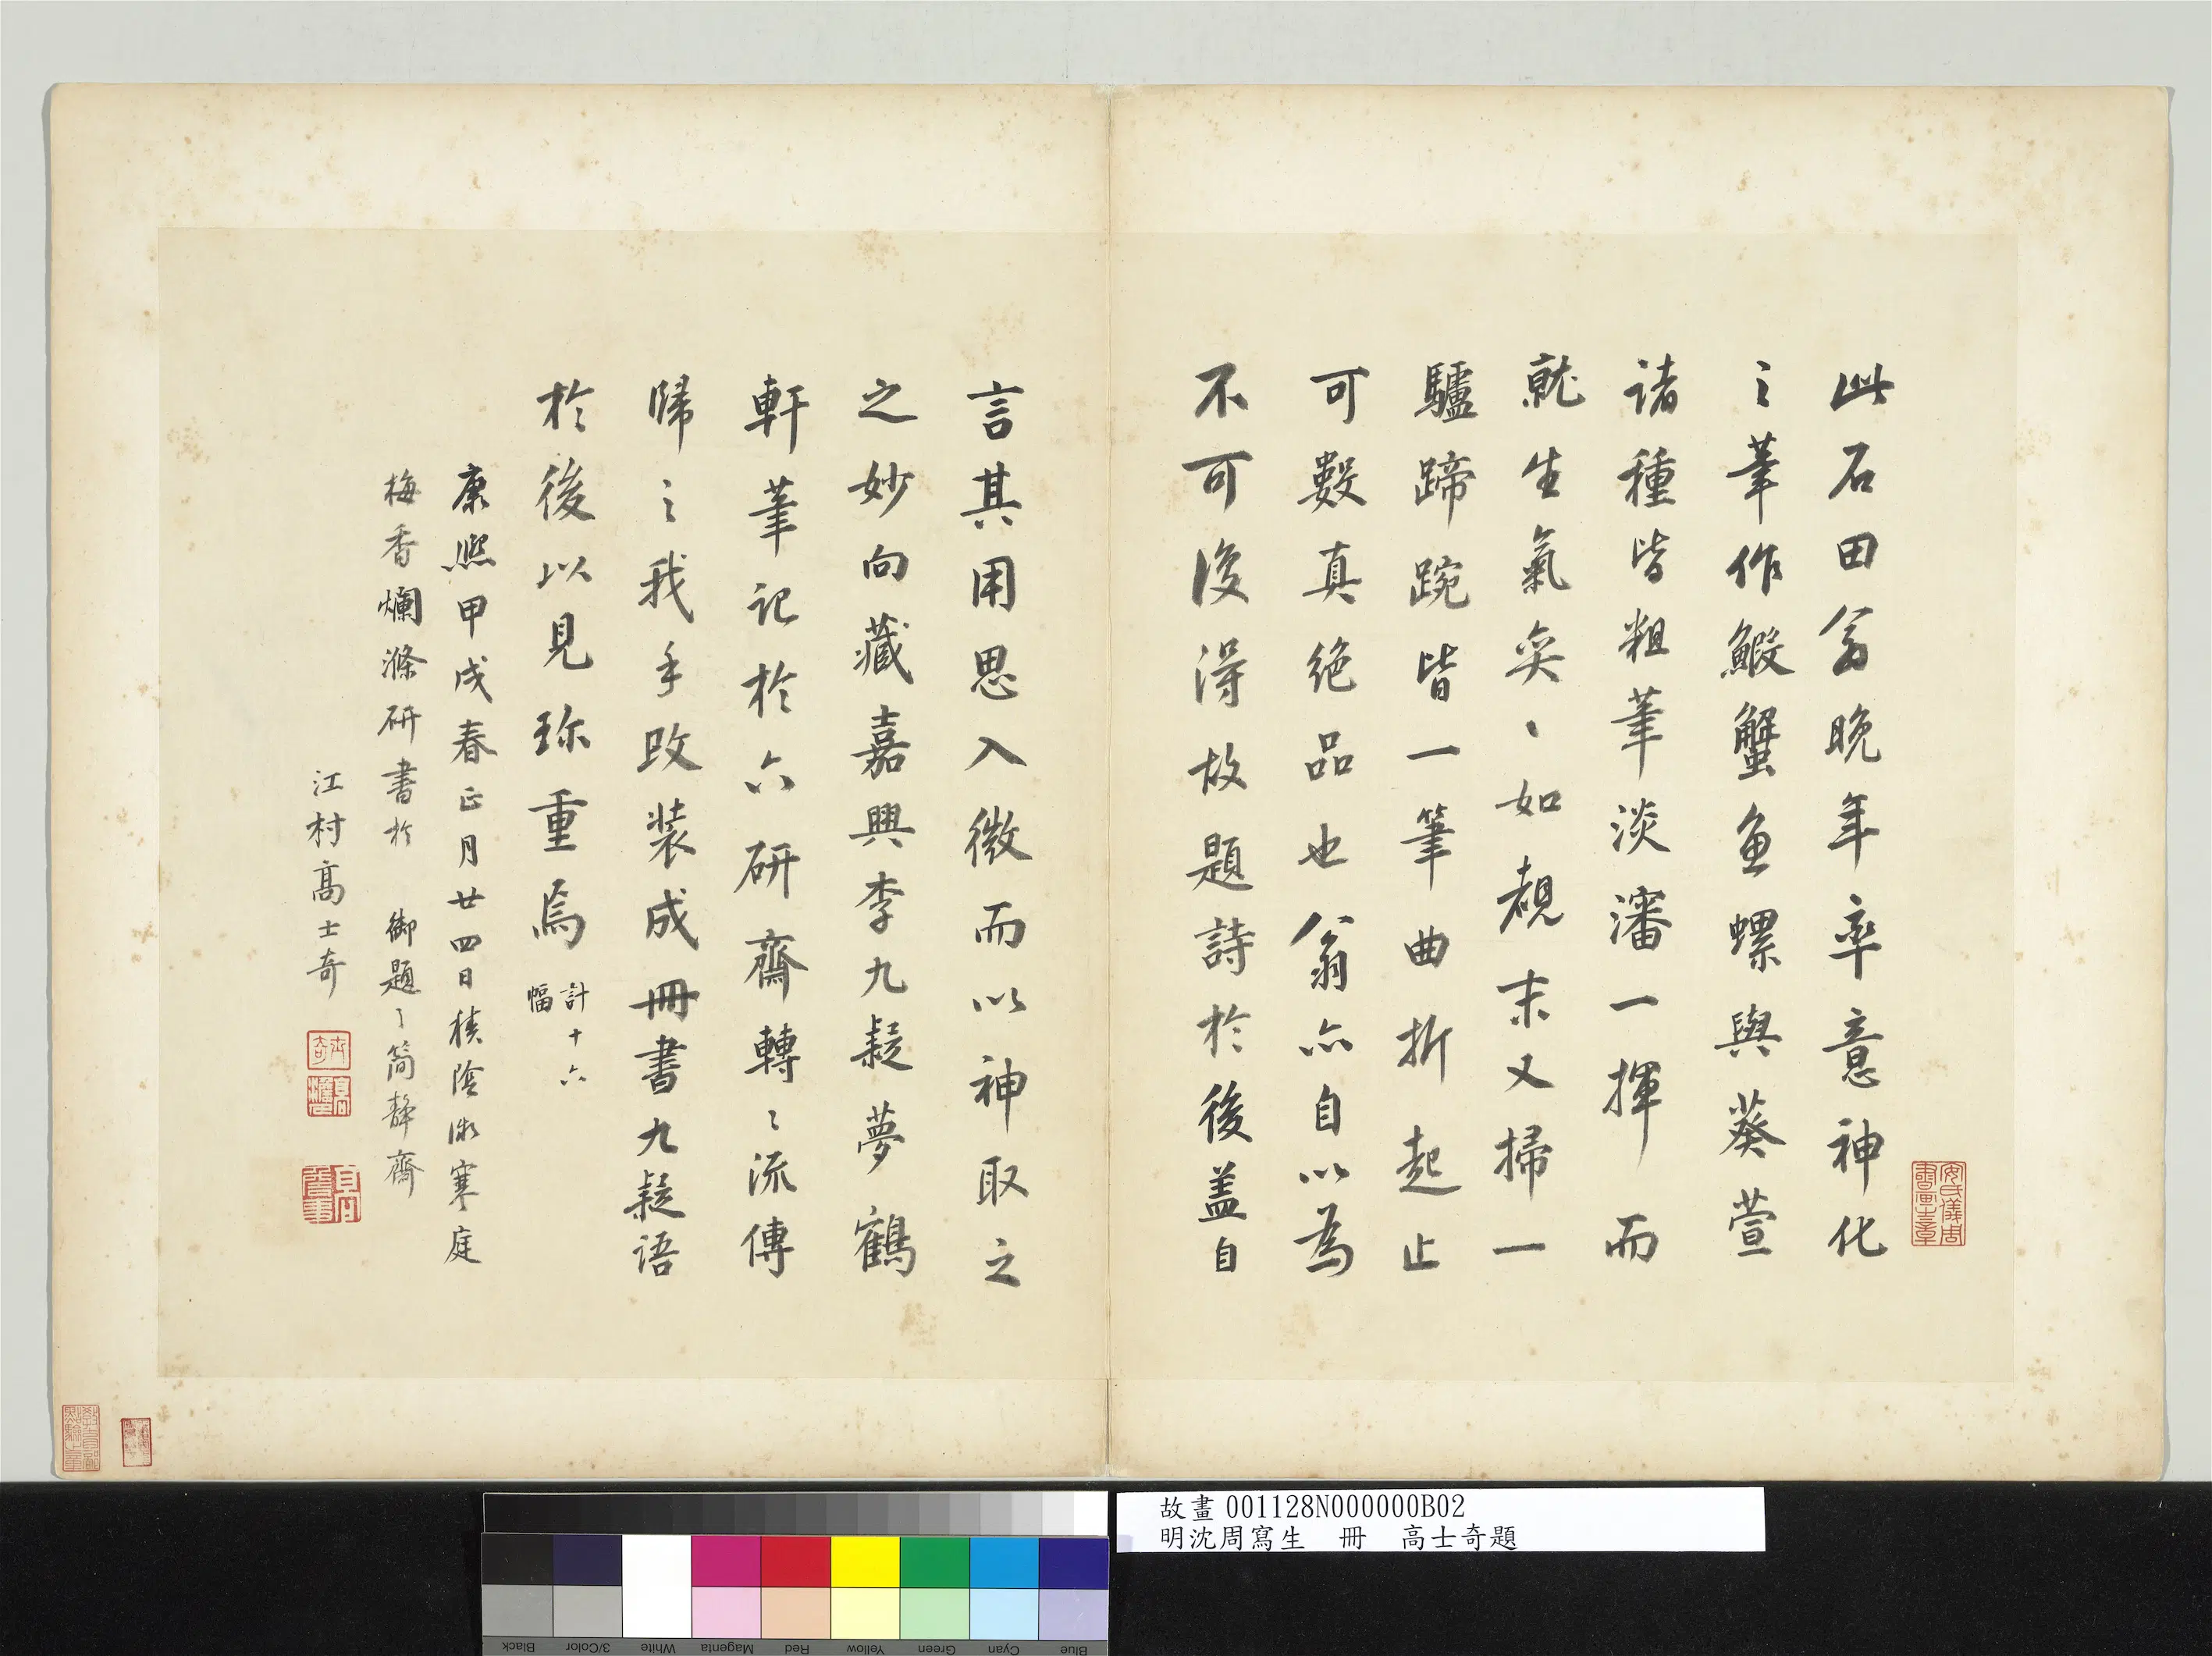 此石田翁晚年率意神化
之筆作鰕蟹魚螺與葵萱
諸種皆粗筆淡瀋一揮而
就生氣奕、如覩末又掃一
驢蹄踠皆一筆曲折起止
可數真絕品也翁亦自以為
不可復得故題詩於後蓋自
言其用思入微而以神取之
之妙向藏嘉興李九疑夢鶴
軒筆記於六研齋轉〻流傳
歸之我手改裝成冊書九疑語
於後以見珍重焉 計十六
幅
康熙甲戌春正月廿四日積陰微寒庭
梅香爛滌研書於 御題〻簡靜齋
江村高士奇
士奇
安氏儀周書畫之章
故畫 001128N000000B02
明沈周寫生 冊 高士奇題
Black
3/Color
White
Magenta
Red
Yellow
Green
Cyan
Blue